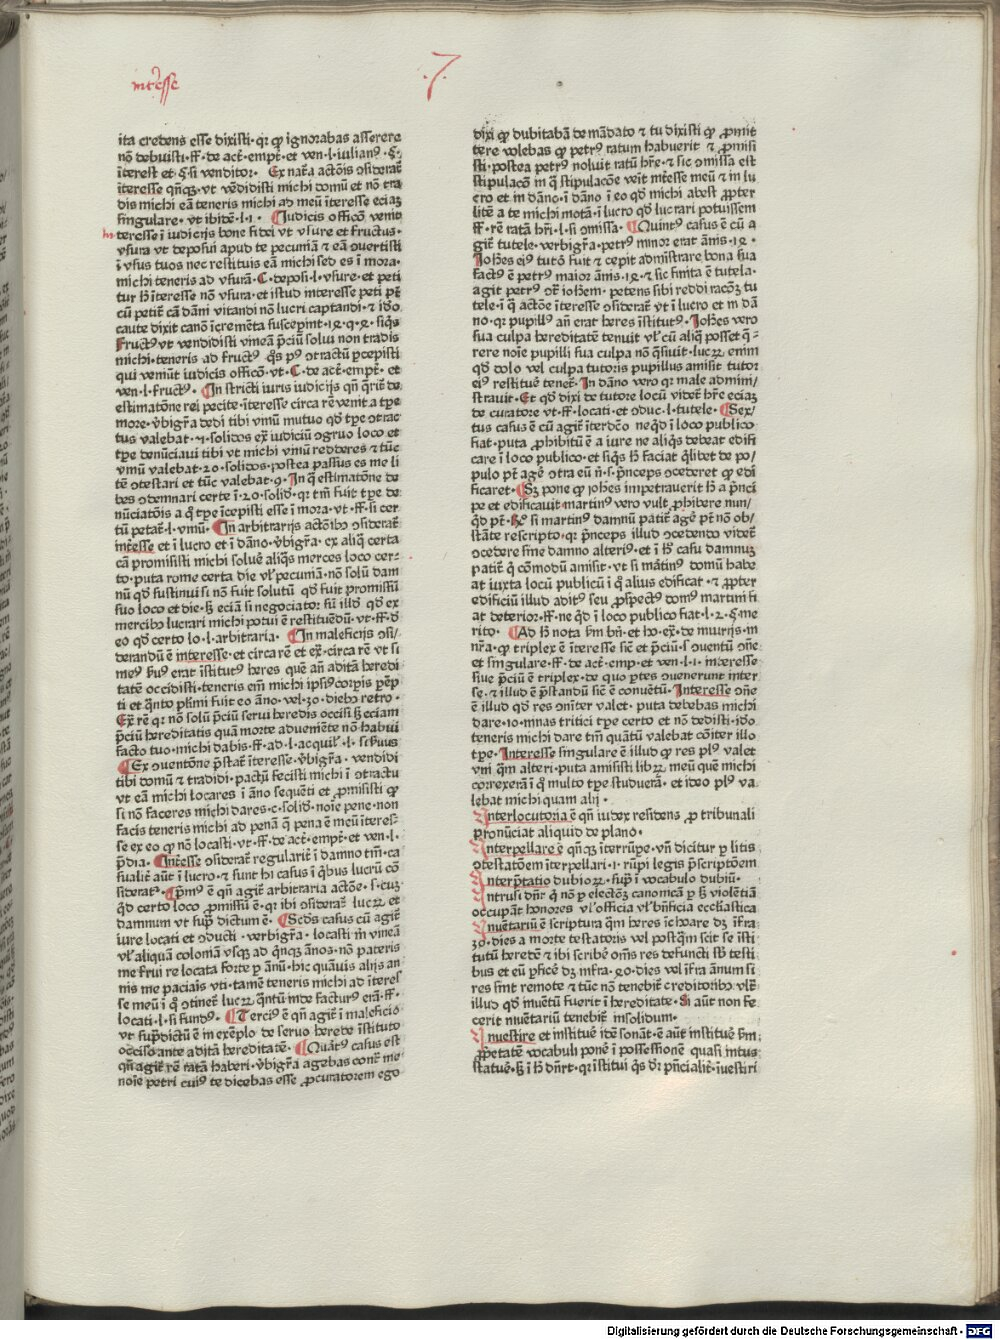 intēsse
·7·
ita credens esse dixisti · qꝛ qꝫ ignorabas asserere
nō debuisti · ff · de act · empt · et ven · l · iulian⁹ · §·
īterest et §·si venditor · Ex nar̃a actōis ↄsiderat̃
īteresse qn̄qꝫ · vt vēdidisti michi domū et nō tra
dis michi eā teneris michi ad meū īteresse eciaꝫ
singulare · vt ibidē · l · 1 · Judicis officō venit
interesse ī iudicijs bone fidei vt vsure et fructus ·
vsura vt deposui apud te pecuniā ⁊ eā ↄuertisti
ī vsus tuos nec restituis eā michi sed es ī mora ·
michi teneris ad vsurā · C · depositi · l · vsure · et peti
tur h̄ īteresse nō vsura · et istud interesse peti pt̄
cū petit̃ cā dāni vitandi nō lucri captandi · ⁊ iđo
caute dixit canō īcremēta suscepint · 14 · q · 4 · siq̄s
Fruct⁹ vt vendidisti vineā p̄ciū solui non tradis
michi · teneris ad fruct⁹ q̄s p⁹ ↄtractū pcepisti
qui veniūt iudicis officō · vt · C · de act · empt̃ · et
ven · l · fruct⁹ · In stricti iuris iudicijs qn̄ q̄rit̃ de
estimatōne rei pecite · īteresse circa rē venit a tpe
more · v̄bigr̃a dedi tibi vinū mutuo qđ tpe ↄtrac
tus valebat · 7 · solidos ex̃ iudiciū ↄgruo loco et
tpe denūciaui tibi vt michi vinū redderes ⁊ tūc
vinū valebat · 20 · solidos · postea passus es me li
tē ↄtestari et tūc valebat · 9 · In q̄ estimatōne de
bes ↄdemnari certe ī · 20 · solid · qꝛ tm̄ fuit tpe de
nūciatōis a q̊ tpe īcepisti esse ī mora · vt · ff · si cer
tū petat̃ · l · vinū · In arbitrarijs actōibꝰ ↄsiderat̃
int̃esse et ī lucro et ī dāno · v̄bigr̃a · ex aliq̃ certa
cā promisisti michi soluē aliq̄s merces loco cer-
to · puta rome certa die vl̃ pecuniā · nō solū dam
nū qđ sustinui si nō fuit solutū qđ fuit promissū
suo loco et die · ꝫ eciā si negociator sū illđ qđ ex
mercibꝰ lucrari michi potui ē restituēdū · vt · ff · đ
eo qđ certo lo · l · arbitraria · In maleficijs ↄsi/
derandū ē interesse · et circa rē et ex̃ · circa rē vt si
me⁹ ẜu⁹ erat īstitut⁹ heres quē an̄ aditā heredi
tatē occidisti · teneris em̄ michi ipsi⁹ corpis p̄ep
ti et q̃nto pl̃imi fuit eo āno · vel · 30 · diebꝰ retro ·
Ex̃ rē qꝛ nō solū p̄ciū serui heredis occisi ꝫ eciam
p̄ciū hereditatis quā morte adueniēte nō habui
facto tuo · michi dabis · ff · ad · l · acquil̃ · l · si ẜuus
Ex ↄuentōne p̄stat̃ īteresse · v̄bigr̃a · vendidi
tibi domū ⁊ tradidi · pactū fecisti michi ī ↄtractu
vt eā michi locares ī āno sequēti et ꝓmisisti qꝫ
si nō faceres michi dares · c · solid · noīe pene · non
facis teneris michi ad penā q̃ pena ē meū īteres-
se ex eo qꝫ nō locasti · vt · ff · de act · empt̃ · et ven · l ·
p̄dia · Int̃esse ↄsiderat̃ regularit̃ ī damno tm̄ · ca
sualit̃ aūt ī lucro · ⁊ sunt hi casus ī q̄bus lucrū cō
siderat̃ · P̄m⁹ ē qn̄ agit̃ arbitraria actōe · s · cuꝫ
q̊d certo loco ꝓmissū ē · qꝛ ibi ↄsiderat̃ lucꝝ et
damnum vt sup̃ dictum ē · Scđs casus cū agit̃
iure locati et ↄducti · verbigr̃a · locasti m̄ vineā
vl̃ aliquā coloniā vsqꝫ ad q̄ncqꝫ ānos · nō pateris
me frui re locata forte p ānū · hic quāuis alijs an
nis me paciais vti · tamē teneris michi ad īteres
se meū ī q̊ ↄtinet̃ lucꝝ q̄ntū inde factur⁹ erā · ff ·
locati · l · si fund⁹ · Terci⁹ ē qn̄ agit̃ ī maleficio
vt sup̃dictū ē in exēplo de seruo herede īstituto
occiso ante aditā hereditatē · Quart⁹ casus est
qn̄ agit̃ rē ratā haberi · v̄bigr̃a agebas contͬ me
noīe petri cui⁹ te dicebas esse ꝓcuratorem ego
dixi qꝫ dubitabā de mādato ⁊ tu dixisti qꝫ ꝓmit
tere volebas qꝫ petr⁹ ratum habuerit ⁊ ꝓmisi
sti · postea petr⁹ noluit ratū hr̃e · ⁊ sic ↄmissa est
stipulacō in q̃ stipulacōe veīt int̃esse meū ⁊ in lu
cro et in dāno · ī dāno ī eo qđ michi abest ꝓpter
litē a te michi motā · ī lucro qđ lucrari potuissem
ff · rē ratā hr̃i · l · si ↄmissa · Quint⁹ casus ē cū a
git̃ tutele · verbigr̃a · petr⁹ minor erat ānis · 14 ·
Joh̄es ei⁹ tutō fuit ⁊ cepit admīstrare bona sua
fact⁹ ē petr⁹ maior ānis · 14 · ⁊ sic finita ē tutela ·
agit petr⁹ ↄt̃ ioh̄em · petens sibi reddi racōꝫ tu
tele · ī q̃ actōe īteresse ↄsiderat̃ vt ī lucro et in dā
no · qꝛ pupill⁹ an̄ erat heres īstitut⁹ · Joh̄es vero
sua culpa hereditatē tenuit vl̃ cū aliq̊ posset q̄-
rere noīe pupilli sua culpa nō q̄siuit · lucꝝ enim
qđ dolo vel culpa tutoris pupillus amisit tutor
ei⁹ restituē tenet̃ · In dāno vero qꝛ male admini/
strauit · Et qđ dixi de tutore locū videt̃ hr̃e eciaꝫ
de curatore vt · ff · locati · et ↄduc · l · tutele · Sex/
tus casus ē cū agit̃ īterdc̄o neqđ ī loco publico
fiat · puta ꝓhibitū ē a iure ne aliq̄s debeat edifi
care ī loco publico · et siq̄s h̄ faciat q̄libet de po/
pulo pt̄ agē ↄtra eū n̄ · s · p̄nceps ↄcederet qꝫ edi
ficaret · Sꝫ pone qꝫ ioh̄es impetrauerit h̄ a p̄nci
pe et edificauit · martin⁹ vero vult ꝓhibere nun/
q̊d pt̄ · Rͦ si martin⁹ damnū patit̃ agē pt̄ nō ob/
stāte rescripto · qꝛ p̄nceps illud ↄcedendo videt̃
ↄcedere sine damno alteri⁹ · et ī h̄ casu damnuꝫ
patit̃ q̊ cōmodū amisit · vt si mātin⁹ domū habe
at iuxta locū publicū ī q̊ alius edificat · ⁊ ꝓpter
edificiū illud adit⁹ seu ꝓspect⁹ dom⁹ martini fi
at deterior · ff · ne q̊d ī loco publico fiat · l · 2 · §·me
rito · Ad h̄ nota ẜm bn̄ · et hꝰ · ex̃ · de iniurijs · in
nr̃a · qꝫ triplex ē īteresse sic̄ et p̄ciū · s · ↄuentū ōne
et singulare · ff · de act · emp · et ven · l · 1 · interesse
siue p̄ciū ē triplex · de quo ptes ↄuenerunt inter
se · ⁊ illud ē p̄standū sic̄ ē conuētū · Interesse ōne
ē illud qđ res ōniter valet · puta debebas michi
dare · 10 · minas tritici tpe certo et nō dedisti · iđo
teneris michi dare tm̄ quātū valebat cōiter illo
tpe · Interesse singulare ē illud qꝫ res pl⁹ valet
vni q̃m alteri · puta amisisti libꝝ meū quē michi
correxerā ī q̊ multo tpe studuerā · et ideo pl⁹ va
lebat michi quam alij ·
Interlocutoria ē qn̄ iudex residens ꝓ tribunali
pronūciat aliquid de plano ·
Interpellare ē qn̄qꝫ īterrūpe · vn̄ dicitur p litis
ↄtestatōem īterpellari · i · rūpi legis p̄scriptōem
Interp̄tatio dubioꝝ · sup̃ ī vocabulo dubiū ·
Intrusi dn̄r q̊ nō p electōꝫ canonicā p ꝫ violētiā
occupāt honores vl̃ officia vl̃ bn̄ficia ecclīastica
Inuētariū ē scriptura q̃m heres īchoare dꝫ īfra
30 · dies a morte testatoris vel postq̃m scit se īsti
tutū heredē ⁊ ibi scribē om̄s res defuncti sb̄ testi
bus et eū pficē dꝫ infra · 90 · dies vel īfra ānum si
res sint remote ⁊ tūc nō tenebit̃ creditoribꝰ vlt̃
illud qđ inuētū fuerit ī hereditate · Si aūt non fe
cerit inuētariū tenebit̃ insolidum ·
Inuestire et instituē idē sonāt · ē aūt instituē ẜm
ꝓp̄etatē vocabuli ponē ī possessionē quasi intus
statuē · ꝫ ī h̄ dn̄rt · qꝛ īstitui q̄s dr̃ p̄ncialit̃ · īuestiri
Digitalisierung gefördert durch die Deutsche Forschungsgemeinschaft - DFG